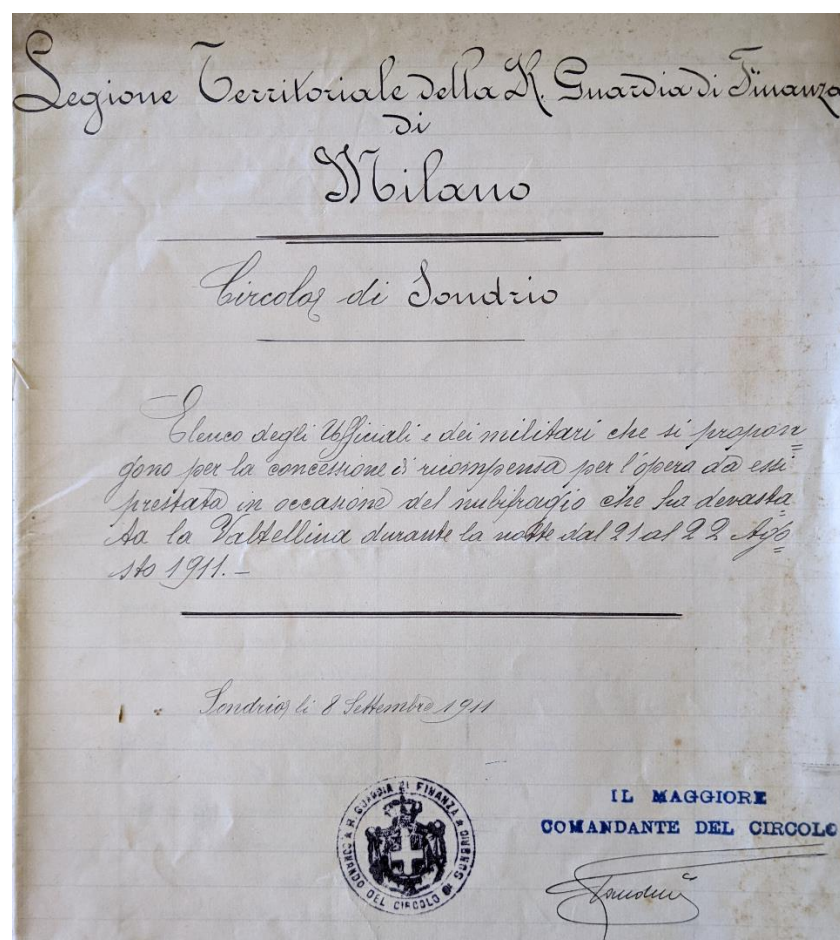 Legione Territoriale della R. Guardia di Finanza
di
Milano
Circolo di Sondrio
Elenco degli Ufficiali e dei militari che si propon=
gono per la concessione di ricompensa per l'opera da essi
prestata in occasione del nubifragio che ha devasta=
ta la Valtellina durante la notte dal 21 al 22 Ago=
sto 1911.-
Sondrio, li 8 Settembre 1911
IL MAGGIORE
COMANDANTE DEL CIRCOLO
R. GUARDIA DI FINANZA
COMANDO DEL CIRCOLO DI SONDRIO